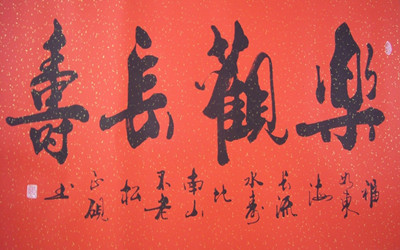 樂觀長壽
福如東海長流水壽比南山不老松
正硯书